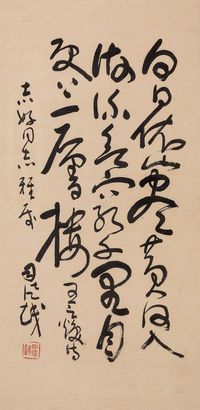 白日依山尽黄河入
海流欲穷千里目
更上一層樓 王之渙诗
志好同志雅属